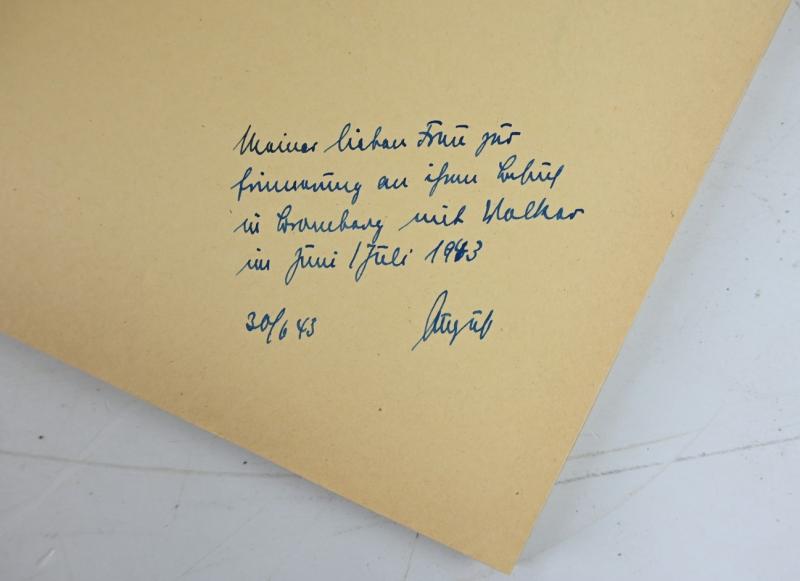 Meiner lieben Frau zur
Erinnerung an ihren Besuch
in Bromberg mit Volker
im Juni / Juli 1943
30/6 43 August